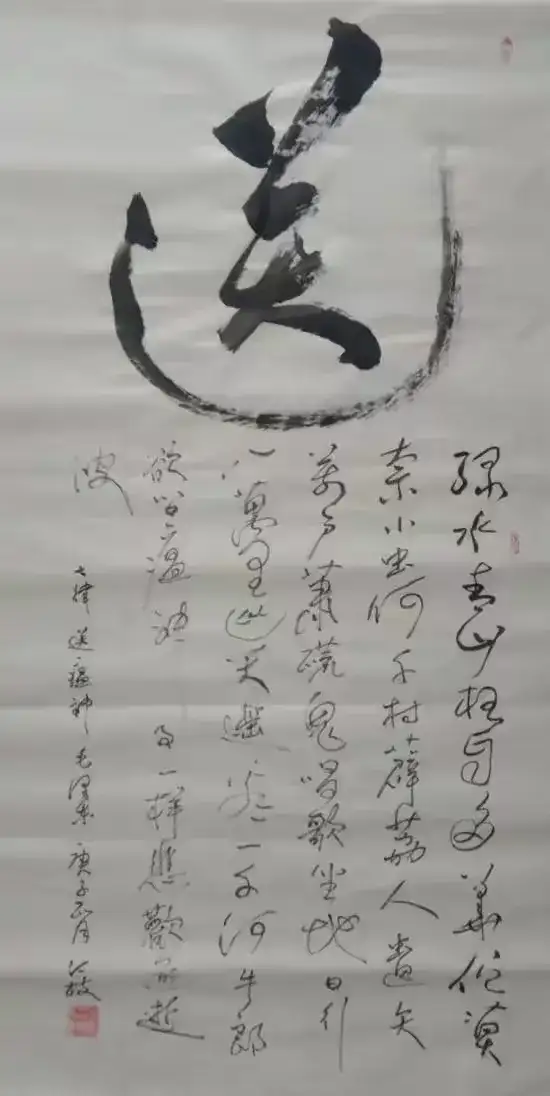 送
绿水青山枉自多華佗莫
奈小虫何千村薜荔人遗矢
萬户萧疏鬼唱歌坐地日行
八萬里巡天遥看一千河牛郎
欲问瘟神事一样悲歡逐逝
波
七律送瘟神毛泽东庚子正月